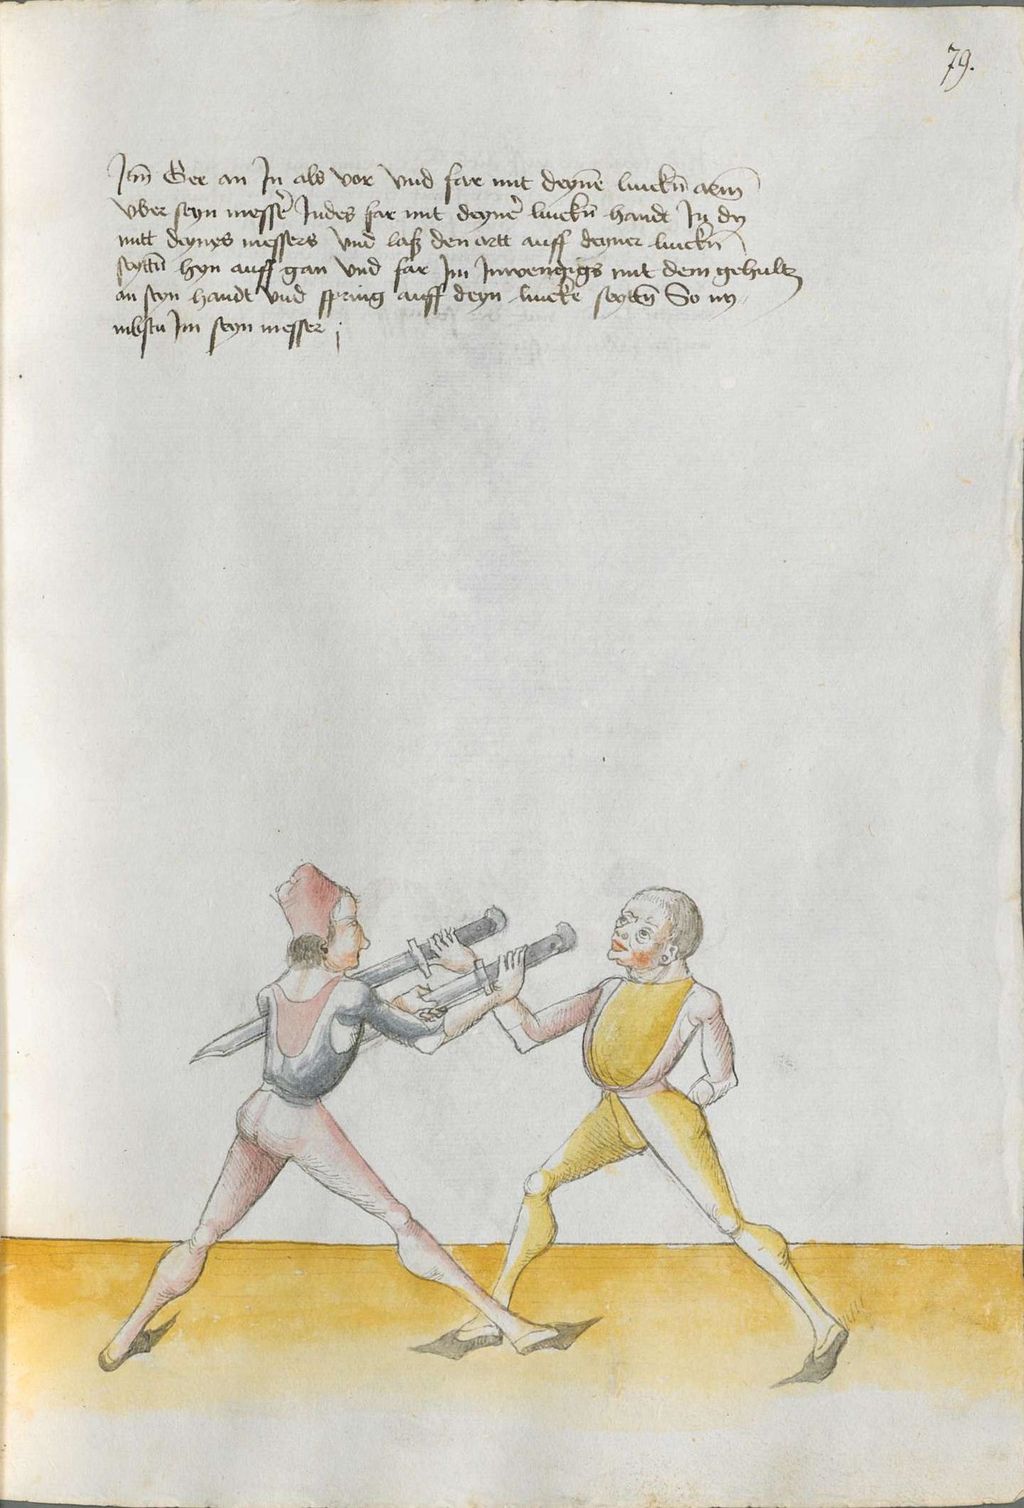 79.
Itm̄ Gee an In als vor vnd far mit deynē linckñ arm̄
vber seyn messer̄ Indes far mit deyner̄ linckñ handt In dy
mitt deynes messers vnd laß den ortt auff deyner linckñ
seyttñ hyn auff gan vnd far Im Inwendigs mit dem gehultz
an seyn handt vnd spring auff deyn lincke seyttñ So ny
mbstu Im seyn messer